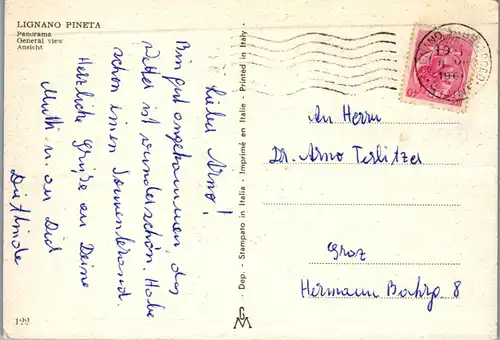 LIGNANO PINETA
Panorama
General view
Ansicht
Lieber Arno!
Bin gut angekommen, das
Wetter ist wunderschön. Habe
schon einen Sonnenbrand.
Herzliche Grüße an Deine
Mutti u. an Dich
Dietlinde
122
Dep. - Stampato in Italia - Imprimé en Italie - Printed in Italy
An Herrn
Dr. Arno Terlitzer
Graz
Hermann Bahrg. 8